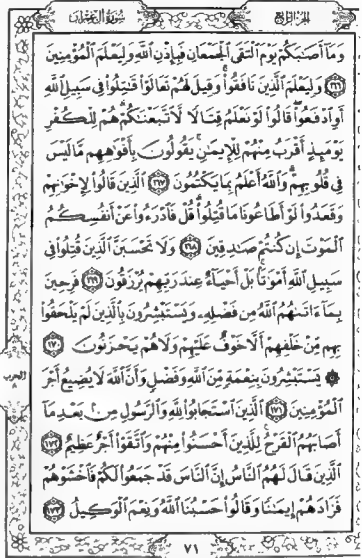 الجزء الرابع
سورة آل عمران
وَمَآ أَصَٰبَكُمْ يَوْمَ ٱلْتَقَى ٱلْجَمْعَانِ فَبِإِذْنِ ٱللَّهِ وَلِيَعْلَمَ ٱلْمُؤْمِنِينَ
١٦٦ وَلِيَعْلَمَ ٱلَّذِينَ نَافَقُوا۟ۚ وَقِيلَ لَهُمْ تَعَالَوْا۟ قَٰتِلُوا۟ فِى سَبِيلِ ٱللَّهِ
أَوِ ٱدْفَعُوا۟ۖ قَالُوا۟ لَوْ نَعْلَمُ قِتَالًا لَّٱتَّبَعْنَٰكُمْۗ هُمْ لِلْكُفْرِ
يَوْمَئِذٍ أَقْرَبُ مِنْهُمْ لِلْإِيمَٰنِۚ يَقُولُونَ بِأَفْوَٰهِهِم مَّا لَيْسَ
فِى قُلُوبِهِمْۗ وَٱللَّهُ أَعْلَمُ بِمَا يَكْتُمُونَ ١٦٧ ٱلَّذِينَ قَالُوا۟ لِإِخْوَٰنِهِمْ
وَقَعَدُوا۟ لَوْ أَطَاعُونَا مَا قُتِلُوا۟ۗ قُلْ فَٱدْرَءُوا۟ عَنْ أَنفُسِكُمُ
ٱلْمَوْتَ إِن كُنتُمْ صَٰدِقِينَ ١٦٨ وَلَا تَحْسَبَنَّ ٱلَّذِينَ قُتِلُوا۟ فِى
سَبِيلِ ٱللَّهِ أَمْوَٰتًۢاۚ بَلْ أَحْيَآءٌ عِندَ رَبِّهِمْ يُرْزَقُونَ ١٦٩ فَرِحِينَ
بِمَآ ءَاتَىٰهُمُ ٱللَّهُ مِن فَضْلِهِۦ وَيَسْتَبْشِرُونَ بِٱلَّذِينَ لَمْ يَلْحَقُوا۟
بِهِم مِّنْ خَلْفِهِمْ أَلَّا خَوْفٌ عَلَيْهِمْ وَلَا هُمْ يَحْزَنُونَ ١٧٠
۞ يَسْتَبْشِرُونَ بِنِعْمَةٍ مِّنَ ٱللَّهِ وَفَضْلٍ وَأَنَّ ٱللَّهَ لَا يُضِيعُ أَجْرَ
ٱلْمُؤْمِنِينَ ١٧١ ٱلَّذِينَ ٱسْتَجَابُوا۟ لِلَّهِ وَٱلرَّسُولِ مِنۢ بَعْدِ مَآ
أَصَابَهُمُ ٱلْقَرْحُۚ لِلَّذِينَ أَحْسَنُوا۟ مِنْهُمْ وَٱتَّقَوْا۟ أَجْرٌ عَظِيمٌ ١٧٢
ٱلَّذِينَ قَالَ لَهُمُ ٱلنَّاسُ إِنَّ ٱلنَّاسَ قَدْ جَمَعُوا۟ لَكُمْ فَٱخْشَوْهُمْ
فَزَادَهُمْ إِيمَٰنًا وَقَالُوا۟ حَسْبُنَا ٱللَّهُ وَنِعْمَ ٱلْوَكِيلُ ١٧٣
٧١